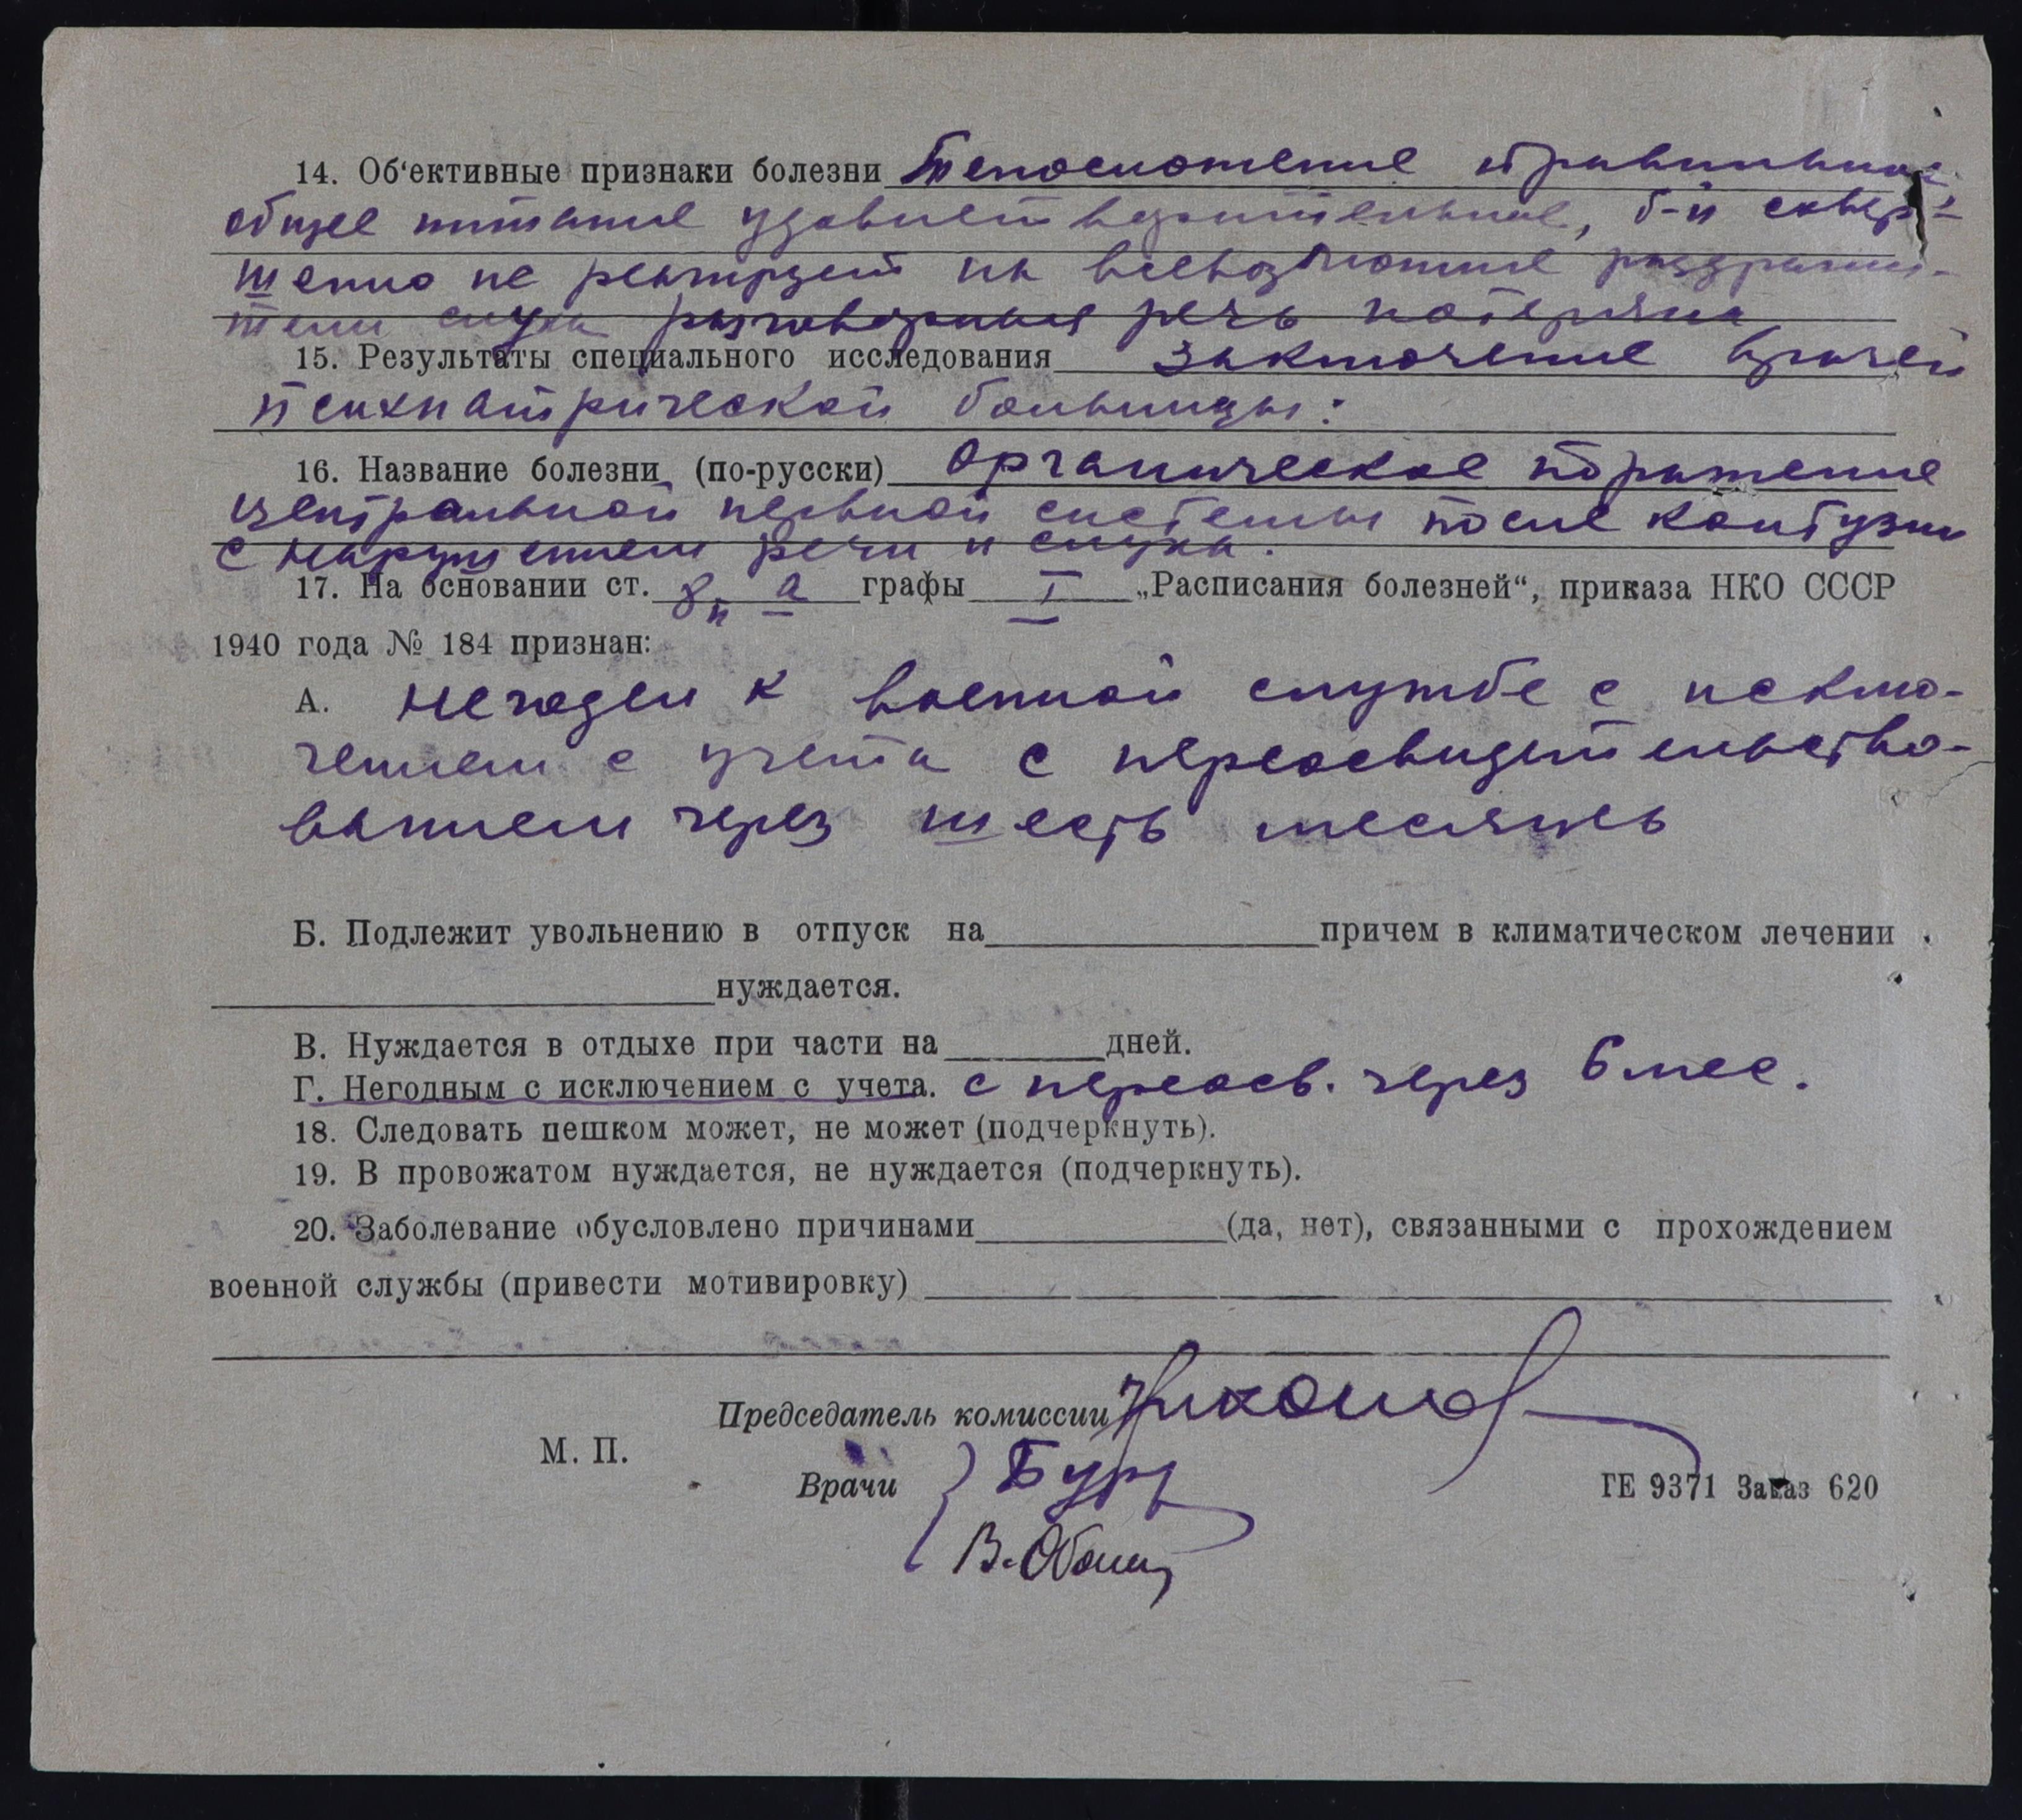 14. Об‘ективные признаки болезни Телосложение правильное
общее питание удовлетворительное, б-й совер-
шенно не реагирует на всевозможные раздражи-
тели слуха разговорная речь потеряна
15. Результаты специального исследования заключение врачей
психиатрической больницы:
16. Название болезни (по-русски) Органическое поражение
центральной нервной системы после контузии
с нарушением речи и слуха.
17. На основании ст. 8 п а графы I „Расписания болезней“, приказа НКО СССР
1940 года № 184 признан:
А. Негоден к военной службе с исклю-
чением с учета с переосвидетельство-
ванием через шесть месяцев
Б. Подлежит увольнению в отпуск на причем в климатическом лечении
нуждается.
В. Нуждается в отдыхе при части на дней.
Г. Негодным с исключением с учета. с переосв. через 6 мес.
18. Следовать пешком может, не может (подчеркнуть).
19. В провожатом нуждается, не нуждается (подчеркнуть).
20. Заболевание обусловлено причинами (да, нет), связанными с прохождением
военной службы (привести мотивировку)
Председатель комиссии
М. П.
Врачи
ГЕ 9371 Заказ 620